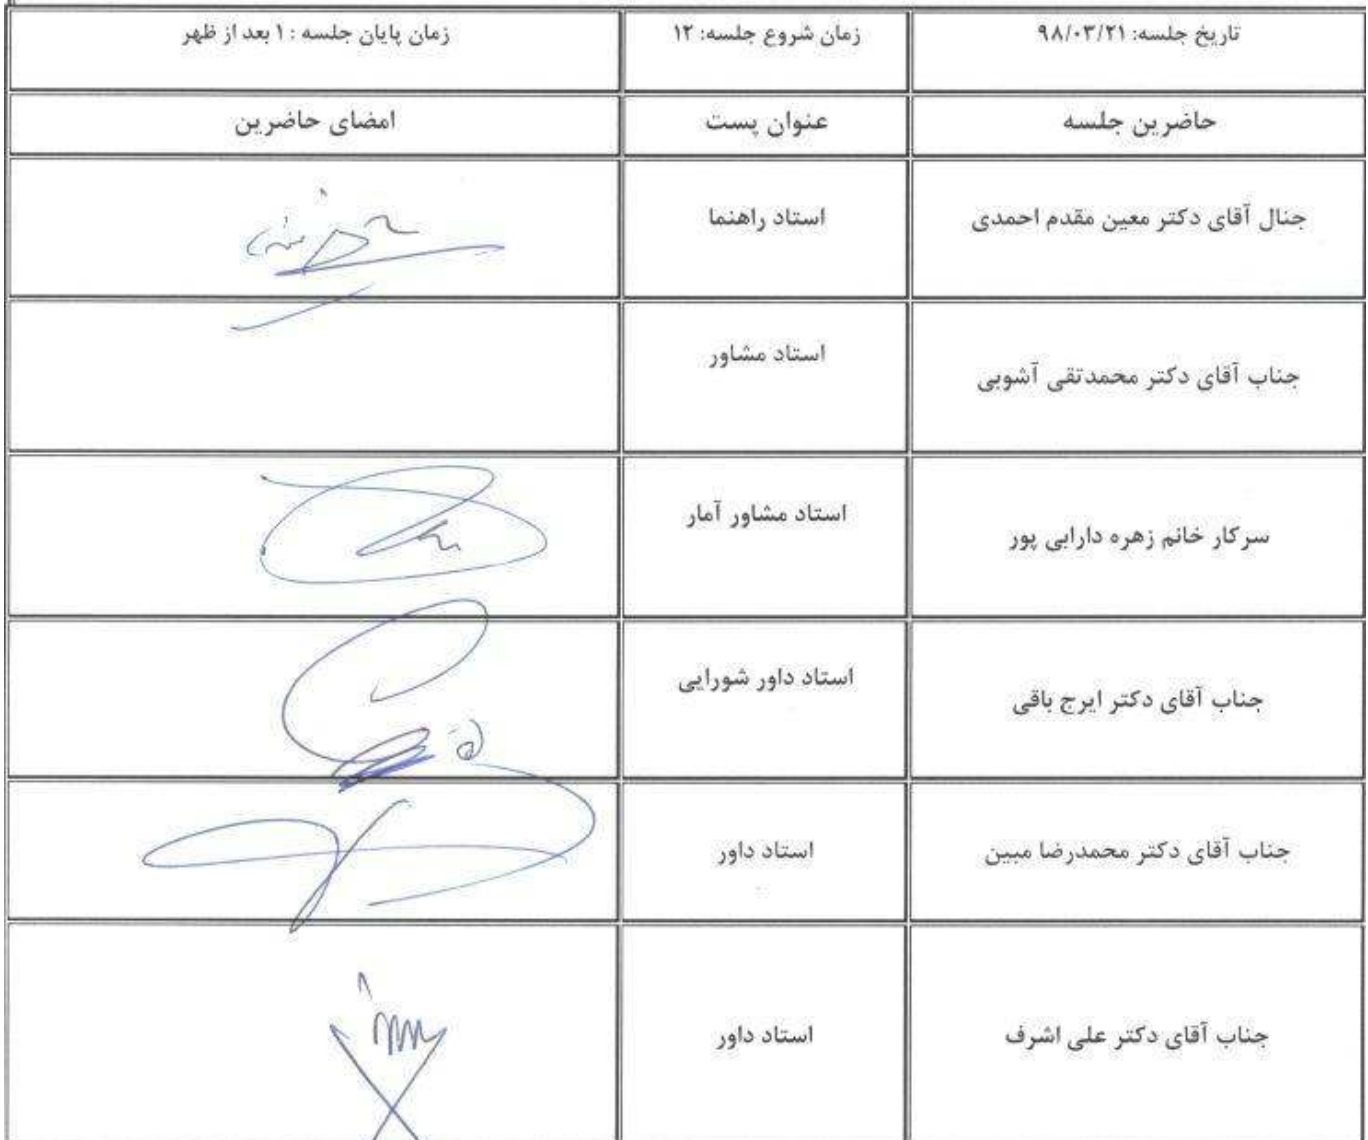 تاریخ جلسه: ۹۸/۰۳/۲۱ زمان شروع جلسه: ۱۲ زمان پایان جلسه : ۱ بعد از ظهر
حاضرین جلسه عنوان پست امضای حاضرین
جنال آقای دکتر معین مقدم احمدی استاد راهنما
جناب آقای دکتر محمدتقی آشوبی استاد مشاور
سرکار خانم زهره دارابی پور استاد مشاور آمار
جناب آقای دکتر ایرج باقی استاد داور شورایی
جناب آقای دکتر محمدرضا مبین استاد داور
جناب آقای دکتر علی اشرف استاد داور